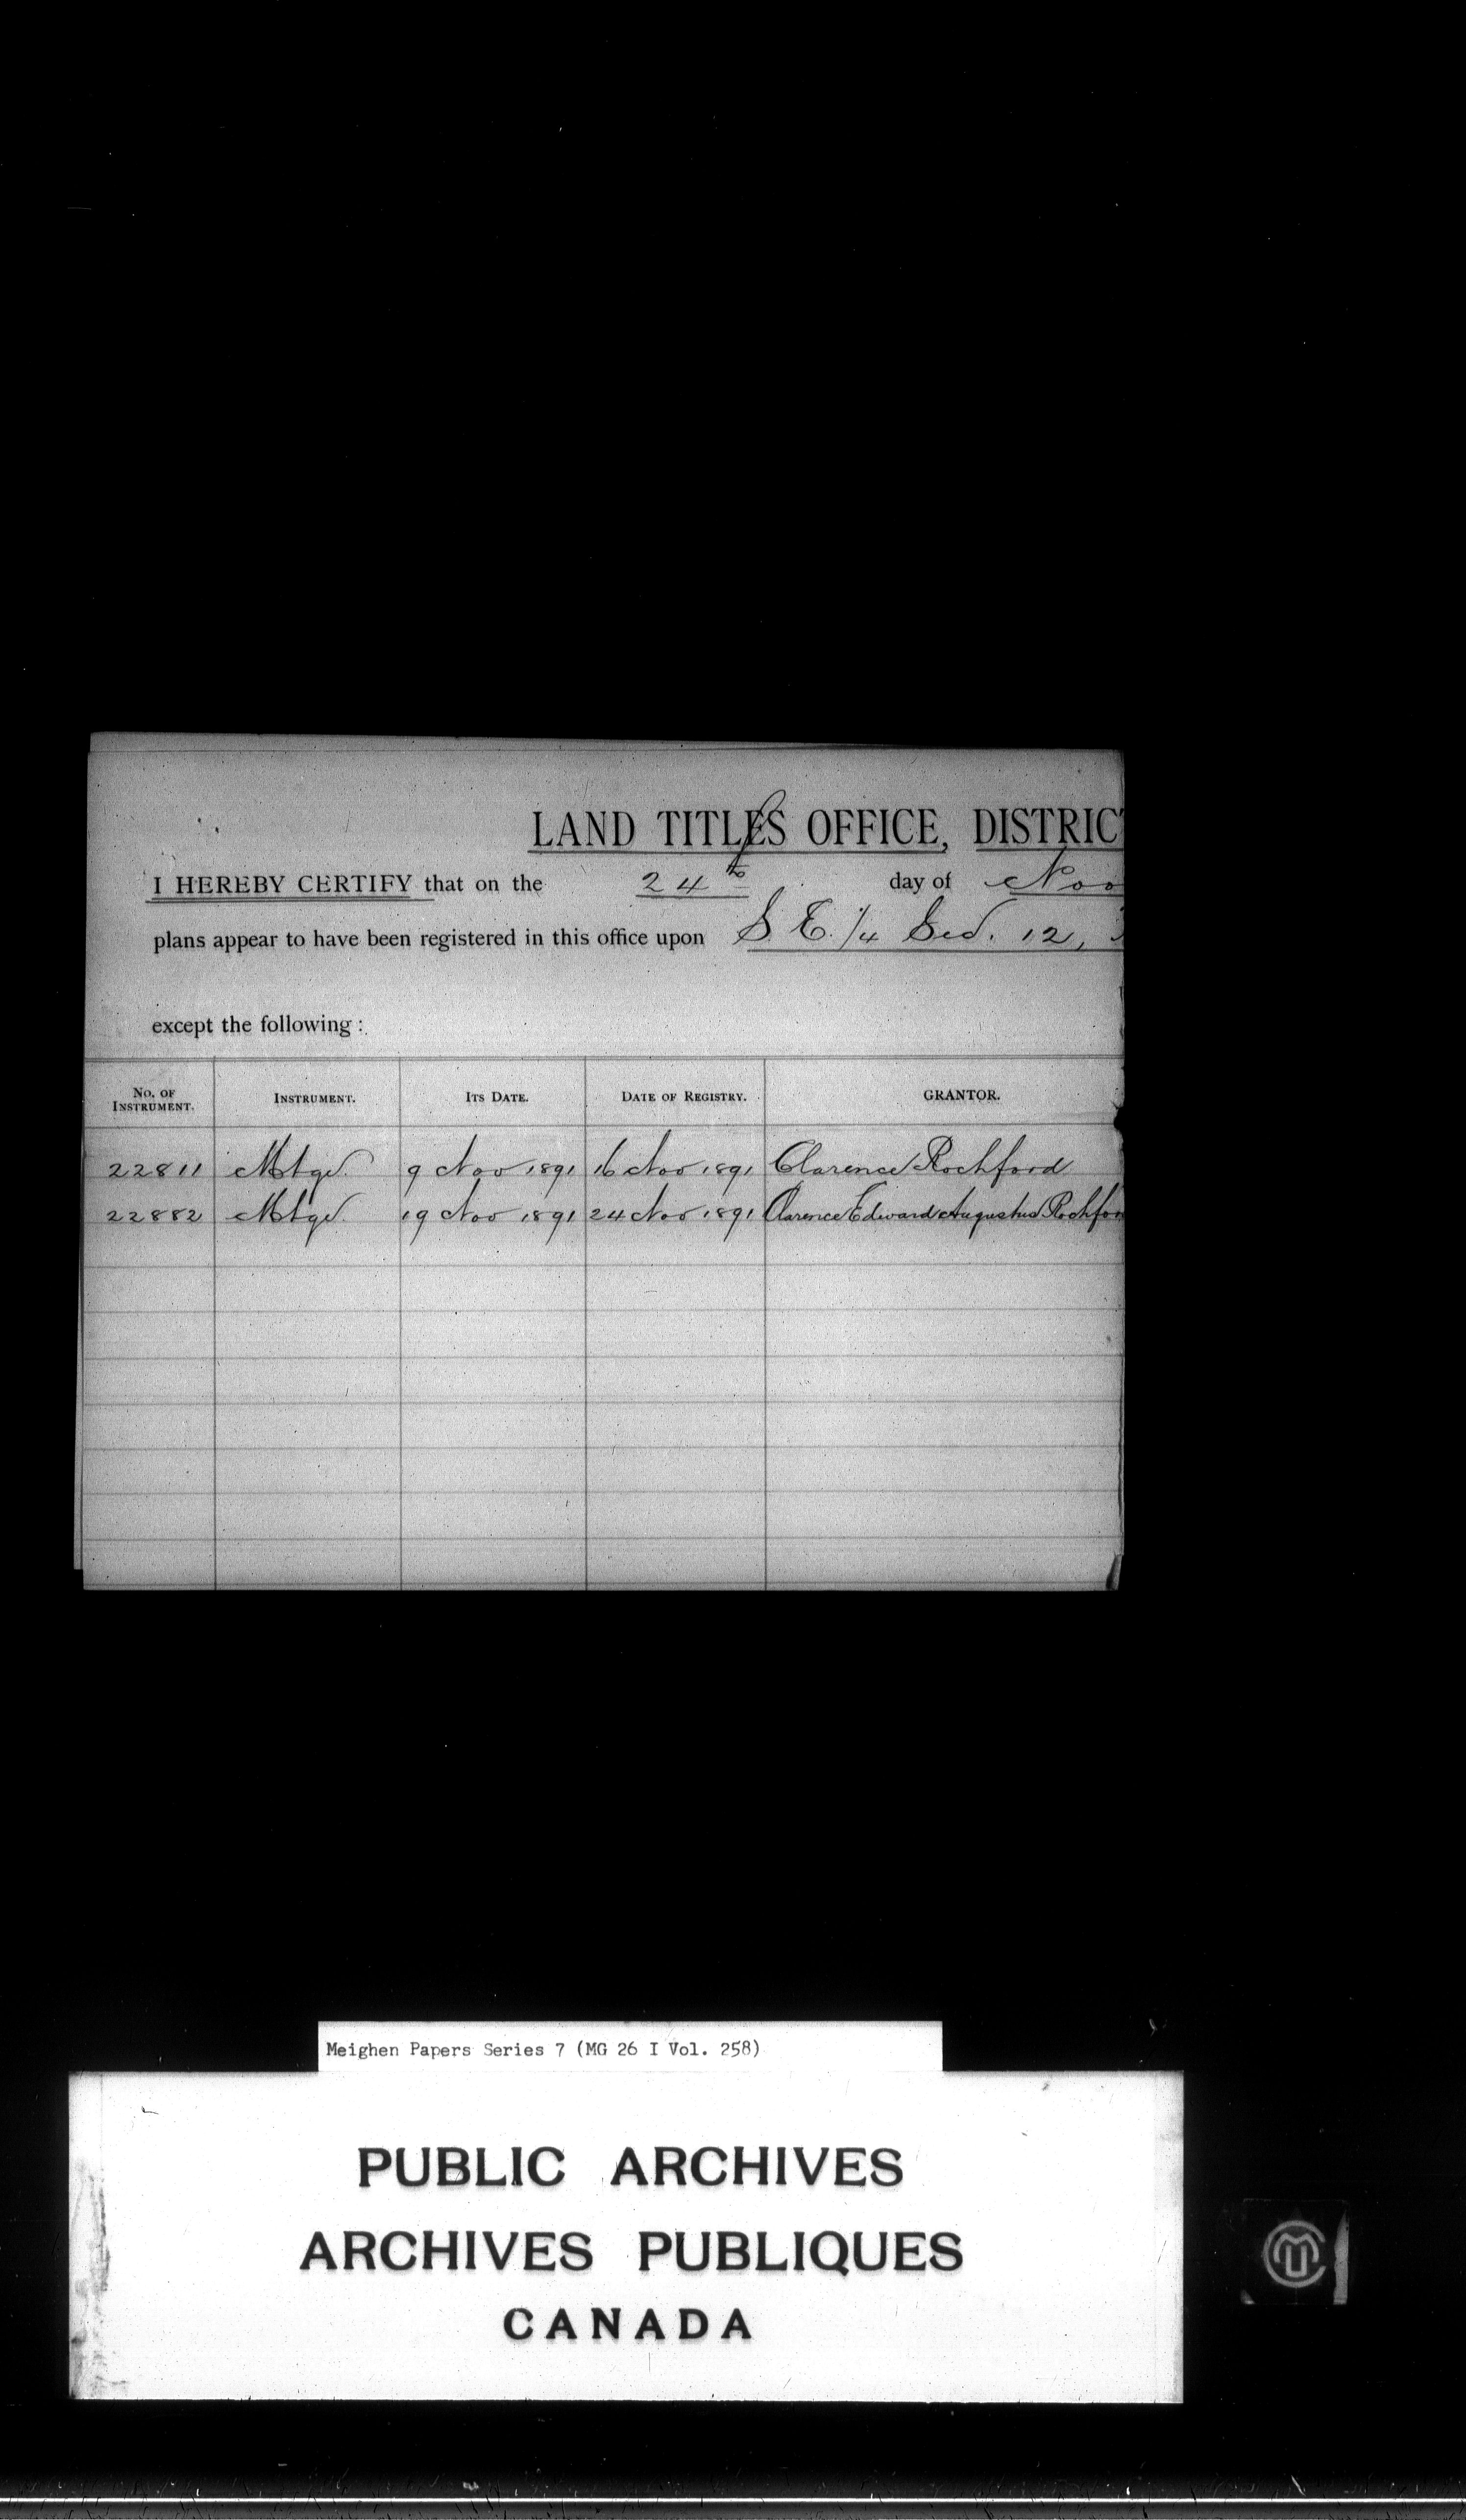 LAND TITLES OFFICE, DISTRICT
I HEREBY CERTIFY that on the 24th day of Nov
plans appear to have been registered in this office upon S. E. 1/4 Sec. 12,
except the following:
No. of Instrument. Instrument. Its Date. Date of Registry. GRANTOR.
22811 Mtge. 9 Nov 1891 16 Nov 1891 Clarence Rochford
22882 Mtge. 19 Nov 1891 24 Nov 1891 Clarence Edward Augustus Rochfor
Meighen Papers Series 7 (MG 26 I Vol. 258)
PUBLIC ARCHIVES
ARCHIVES PUBLIQUES
CANADA